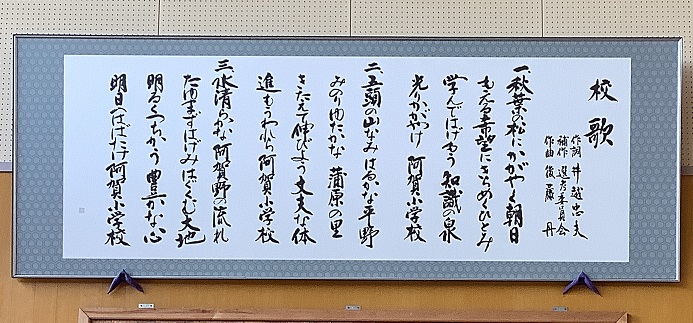 校歌
作詞 井越忠夫
補作 選考委員会
作曲 後藤 丹
一 秋葉の松にかがやく朝日
もえる希望にきらめくひとみ
学んではげもう 知識の泉
光りかがやけ 阿賀小学校
二 五頭の山なみはるかな平野
みのりゆたかな 蒲原の里
きたえて伸びよう 丈夫な体
進もうわれら 阿賀小学校
三 水清らかな 阿賀野の流れ
たゆまずはげみはぐくむ大地
明るくちかう 豊かな心
明日へはばたけ 阿賀小学校